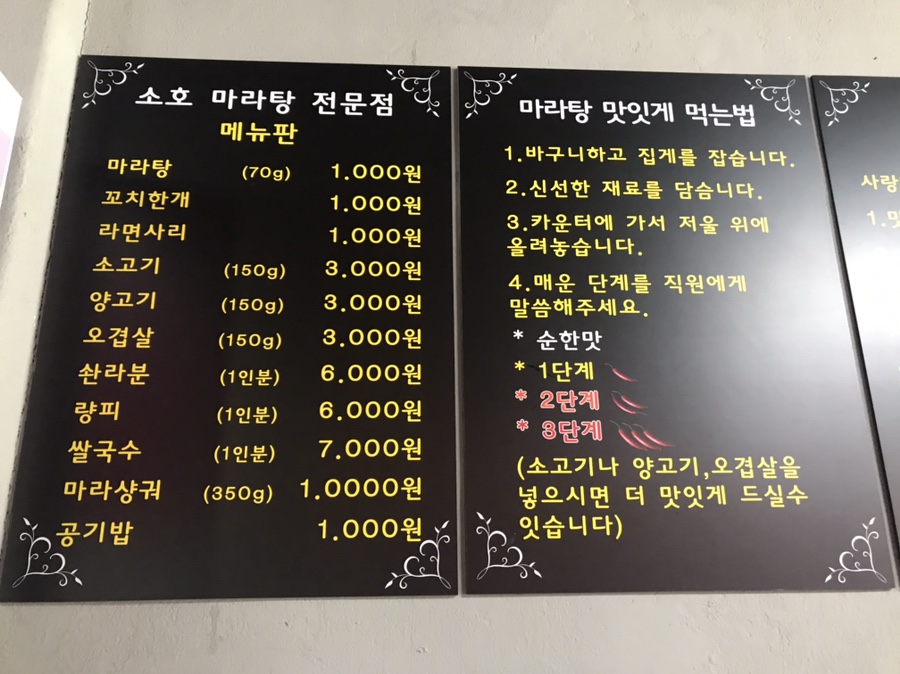 소호 마라탕 전문점
메뉴판
마라탕 (70g) 1.000원
꼬치한개 1.000원
라면사리 1.000원
소고기 (150g) 3.000원
양고기 (150g) 3.000원
오겹살 (150g) 3.000원
솬라분 (1인분) 6.000원
량피 (1인분) 6.000원
쌀국수 (1인분) 7.000원
마라샹궈 (350g) 1.0000원
공기밥 1.000원
마라탕 맛잇게 먹는법
1.바구니하고 집게를 잡습니다.
2.신선한 재료를 담슴니다.
3.카운터에 가서 저울 위에
올려놓습니다.
4.매운 단계를 직원에게
말씀해주세요.
* 순한맛
* 1단계
* 2단계
* 3단계
(소고기나 양고기,오겹살을
넣으시면 더 맛잇게 드실수
잇습니다)
사랑
1.맛